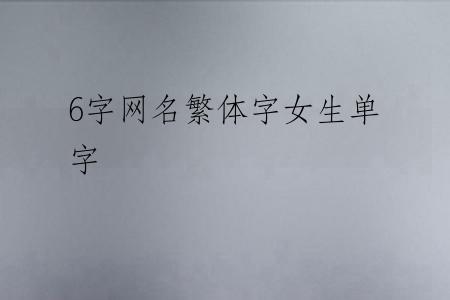 6字网名繁体字女生单
字